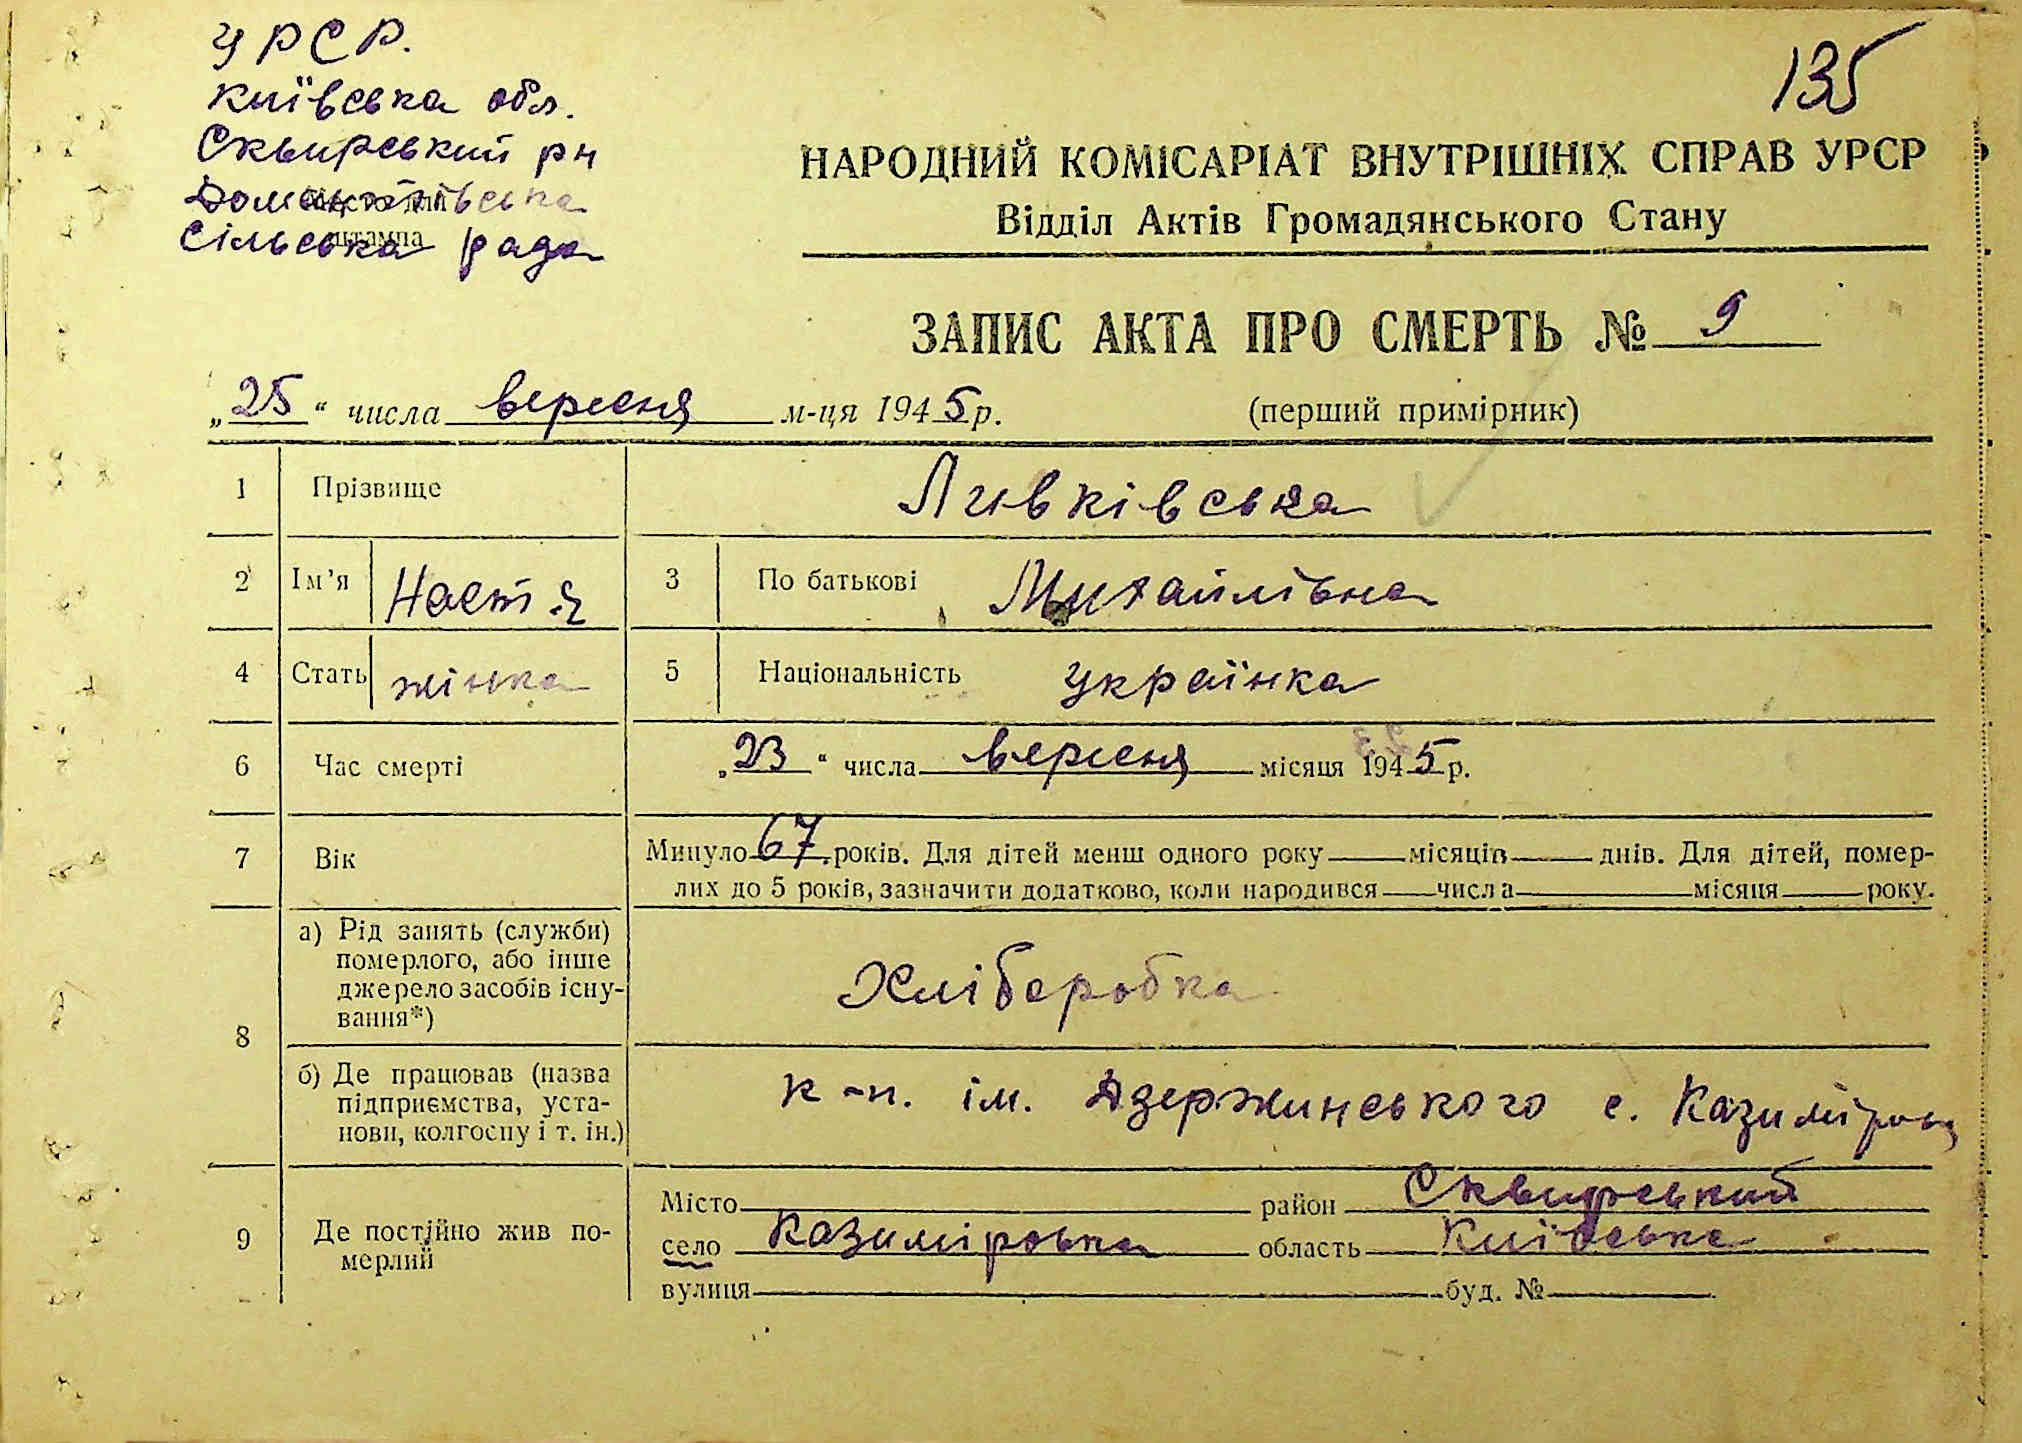 УРСР.
Київська обл.
Сквирський рн
Місце для
штампа
сільська рада
135
НАРОДНИЙ КОМІСАРІАТ ВНУТРІШНІХ СПРАВ УРСР
Відділ Актів Громадянського Стану
ЗАПИС АКТА ПРО СМЕРТЬ № 9
„25“ числа вересня м-ця 1945 р.
(перший примірник)
1 Прізвище Ливківська
2 Ім’я Настя 3 По батькові Михайлівна
4 Стать жінка 5 Національність українка
6 Час смерті „23“ числа вересня місяця 1945 р.
7 Вік Минуло 67 років. Для дітей менш одного року — місяців — днів. Для дітей, помер-
лих до 5 років, зазначити додатково, коли народився — числа — місяця — року.
8 а) Рід занять (служби)
померлого, або інше
джерело засобів існу-
вання*)
Хліборобка
б) Де працював (назва
підприємства, уста-
нови, колгоспу і т. ін.)
к-п. ім. Дзержинського с. Казимірівці
9 Де постійно жив по-
мерлий
Місто район Сквирський
село Казиміровка область Київська
вулиця буд. №